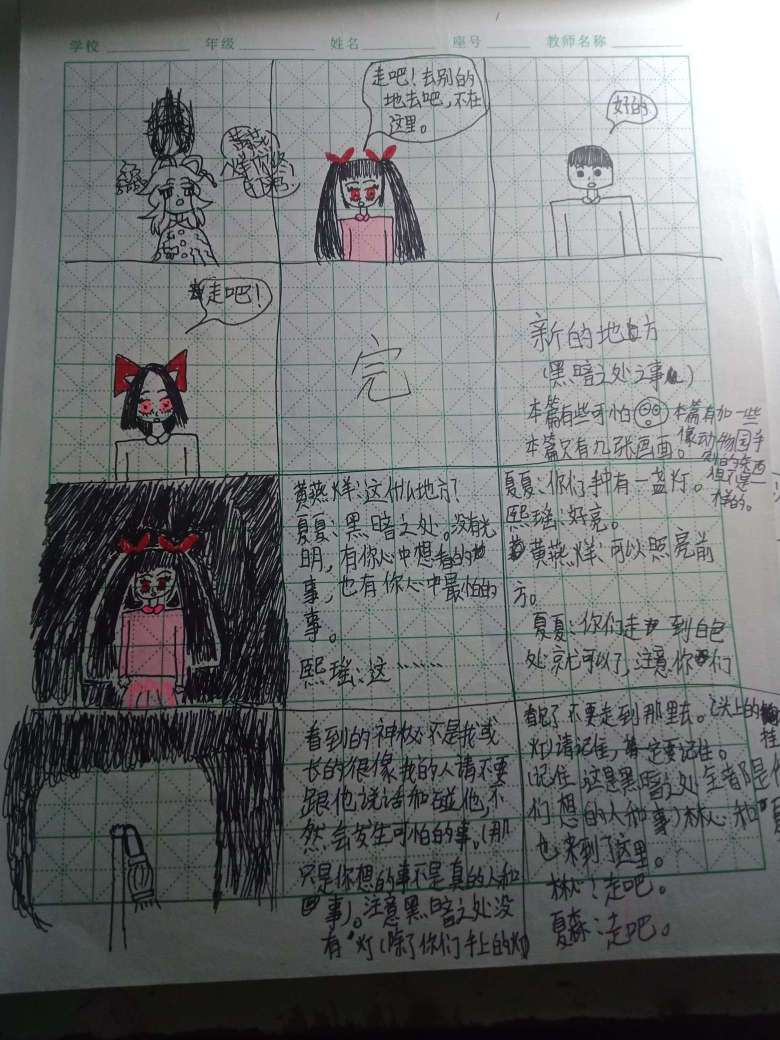 学校 年级 姓名 座号 教师名称
黄燕
烊你终
走吧！去别的
地去吧，不在
这里。
好的
走吧！
完
新的地方
（黑暗之处之事）
本篇有些可怕
本篇只有几张画面。
本篇有加一些
像动物园手
样的。
黄燕烊：这什么地方？
夏夏：黑暗之处。没有光
明，有你心中想看的
事，也有你心中最怕的
事。
熙瑶：这……
夏夏：你们手有一盏灯。
熙瑶：好亮。
黄燕烊：可以照亮前
方。
夏夏：你们走到白色
处就可以了，注意你们
看到的神秘不是我或
长的很像我的人请不要
跟他说话和碰他，不
然会发生可怕的事。（那
只是你想的事不是真的人和
事）。注意黑暗之处没
有灯（除了你们手上的灯）
看见了不要走到那里去。（头上的
灯）请记住，一定要记住。
（记住这是黑暗之处全都是你
们想的人和事）林心和夏
也来到了这里。
林心：走吧。
夏森：走吧。